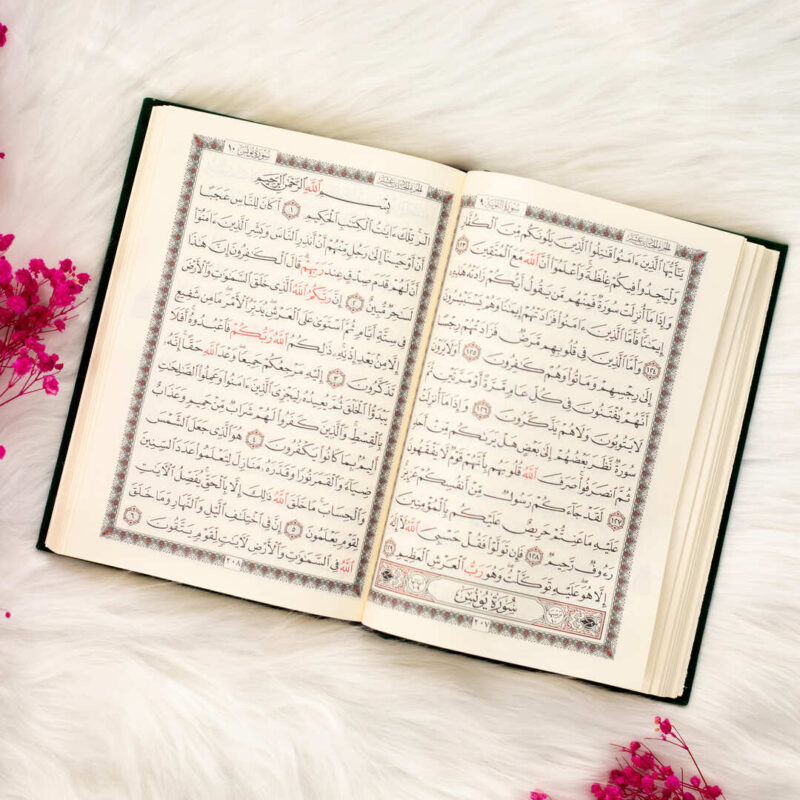 الجُزءُ الحَادِي عَشَرَ سُورَةُ التَّوبَةِ ٩
يَٰٓأَيُّهَا ٱلَّذِينَ ءَامَنُوا۟ قَٰتِلُوا۟ ٱلَّذِينَ يَلُونَكُم مِّنَ ٱلْكُفَّارِ
وَلْيَجِدُوا۟ فِيكُمْ غِلْظَةً ۚ وَٱعْلَمُوٓا۟ أَنَّ ٱللَّهَ مَعَ ٱلْمُتَّقِينَ ١٢٣
وَإِذَا مَآ أُنزِلَتْ سُورَةٌ فَمِنْهُم مَّن يَقُولُ أَيُّكُمْ زَادَتْهُ هَٰذِهِۦٓ
إِيمَٰنًا ۚ فَأَمَّا ٱلَّذِينَ ءَامَنُوا۟ فَزَادَتْهُمْ إِيمَٰنًا وَهُمْ يَسْتَبْشِرُونَ
١٢٤ وَأَمَّا ٱلَّذِينَ فِى قُلُوبِهِم مَّرَضٌ فَزَادَتْهُمْ رِجْسًا
إِلَىٰ رِجْسِهِمْ وَمَاتُوا۟ وَهُمْ كَٰفِرُونَ ١٢٥ أَوَلَا يَرَوْنَ
أَنَّهُمْ يُفْتَنُونَ فِى كُلِّ عَامٍ مَّرَّةً أَوْ مَرَّتَيْنِ ثُمَّ
لَا يَتُوبُونَ وَلَا هُمْ يَذَّكَّرُونَ ١٢٦ وَإِذَا مَآ أُنزِلَتْ
سُورَةٌ نَّظَرَ بَعْضُهُمْ إِلَىٰ بَعْضٍ هَلْ يَرَىٰكُم مِّنْ أَحَدٍ
ثُمَّ ٱنصَرَفُوا۟ ۚ صَرَفَ ٱللَّهُ قُلُوبَهُم بِأَنَّهُمْ قَوْمٌ لَّا يَفْقَهُونَ
١٢٧ لَقَدْ جَآءَكُمْ رَسُولٌ مِّنْ أَنفُسِكُمْ عَزِيزٌ
عَلَيْهِ مَا عَنِتُّمْ حَرِيصٌ عَلَيْكُم بِٱلْمُؤْمِنِينَ
رَءُوفٌ رَّحِيمٌ ١٢٨ فَإِن تَوَلَّوْا۟ فَقُلْ حَسْبِىَ ٱللَّهُ لَآ إِلَٰهَ
إِلَّا هُوَ ۖ عَلَيْهِ تَوَكَّلْتُ ۖ وَهُوَ رَبُّ ٱلْعَرْشِ ٱلْعَظِيمِ ١٢٩
سُورَةُ يُونُسَ
٢٠٧
الجُزءُ الحَادِي عَشَرَ سُورَةُ يُونُسَ ١٠
بِسْمِ ٱللَّهِ ٱلرَّحْمَٰنِ ٱلرَّحِيمِ
الٓر ۚ تِلْكَ ءَايَٰتُ ٱلْكِتَٰبِ ٱلْحَكِيمِ ١ أَكَانَ لِلنَّاسِ عَجَبًا
أَنْ أَوْحَيْنَآ إِلَىٰ رَجُلٍ مِّنْهُمْ أَنْ أَنذِرِ ٱلنَّاسَ وَبَشِّرِ ٱلَّذِينَ ءَامَنُوٓا۟
أَنَّ لَهُمْ قَدَمَ صِدْقٍ عِندَ رَبِّهِمْ ۗ قَالَ ٱلْكَٰفِرُونَ إِنَّ هَٰذَا
لَسَٰحِرٌ مُّبِينٌ ٢ إِنَّ رَبَّكُمُ ٱللَّهُ ٱلَّذِى خَلَقَ ٱلسَّمَٰوَٰتِ وَٱلْأَرْضَ
فِى سِتَّةِ أَيَّامٍ ثُمَّ ٱسْتَوَىٰ عَلَى ٱلْعَرْشِ ۖ يُدَبِّرُ ٱلْأَمْرَ ۖ مَا مِن شَفِيعٍ
إِلَّا مِنۢ بَعْدِ إِذْنِهِۦ ۚ ذَٰلِكُمُ ٱللَّهُ رَبُّكُمْ فَٱعْبُدُوهُ ۚ أَفَلَا
تَذَكَّرُونَ ٣ إِلَيْهِ مَرْجِعُكُمْ جَمِيعًا ۖ وَعْدَ ٱللَّهِ حَقًّا ۚ إِنَّهُۥ
يَبْدَؤُا۟ ٱلْخَلْقَ ثُمَّ يُعِيدُهُۥ لِيَجْزِىَ ٱلَّذِينَ ءَامَنُوا۟ وَعَمِلُوا۟ ٱلصَّٰلِحَٰتِ
بِٱلْقِسْطِ ۚ وَٱلَّذِينَ كَفَرُوا۟ لَهُمْ شَرَابٌ مِّنْ حَمِيمٍ وَعَذَابٌ
أَلِيمٌۢ بِمَا كَانُوا۟ يَكْفُرُونَ ٤ هُوَ ٱلَّذِى جَعَلَ ٱلشَّمْسَ
ضِيَآءً وَٱلْقَمَرَ نُورًا وَقَدَّرَهُۥ مَنَازِلَ لِتَعْلَمُوا۟ عَدَدَ ٱلسِّنِينَ
وَٱلْحِسَابَ ۚ مَا خَلَقَ ٱللَّهُ ذَٰلِكَ إِلَّا بِٱلْحَقِّ ۚ يُفَصِّلُ ٱلْءَايَٰتِ
لِقَوْمٍ يَعْلَمُونَ ٥ إِنَّ فِى ٱخْتِلَٰفِ ٱلَّيْلِ وَٱلنَّهَارِ وَمَا خَلَقَ
ٱللَّهُ فِى ٱلسَّمَٰوَٰتِ وَٱلْأَرْضِ لَءَايَٰتٍ لِّقَوْمٍ يَتَّقُونَ ٦
٢٠٨